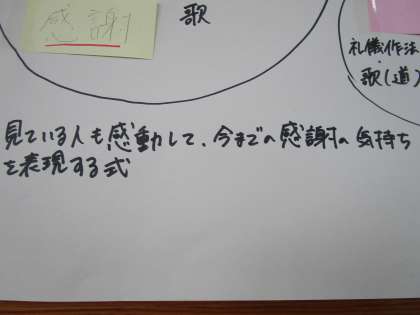 感謝
歌
礼儀作法
・歌(道)
見ている人も感動して、今までの感謝の気持ち
を表現する式